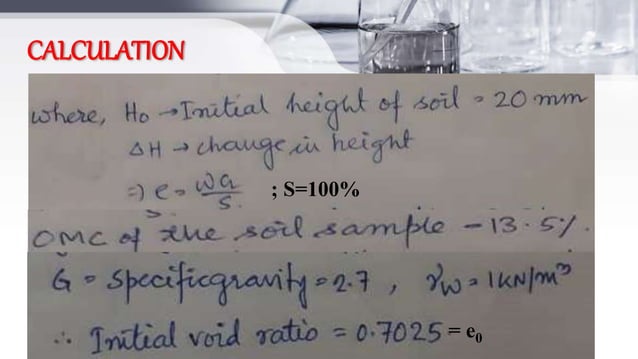 CALCULATION
where, H₀ → Initial height of soil = 20 mm
ΔH → change in height
⇒ e = wG/S ; S=100%
OMC of the soil sample - 13.5%.
G = Specificgravity = 2.7 , γw = 1 KN/m³
∴ Initial void ratio = 0.7025 = e₀